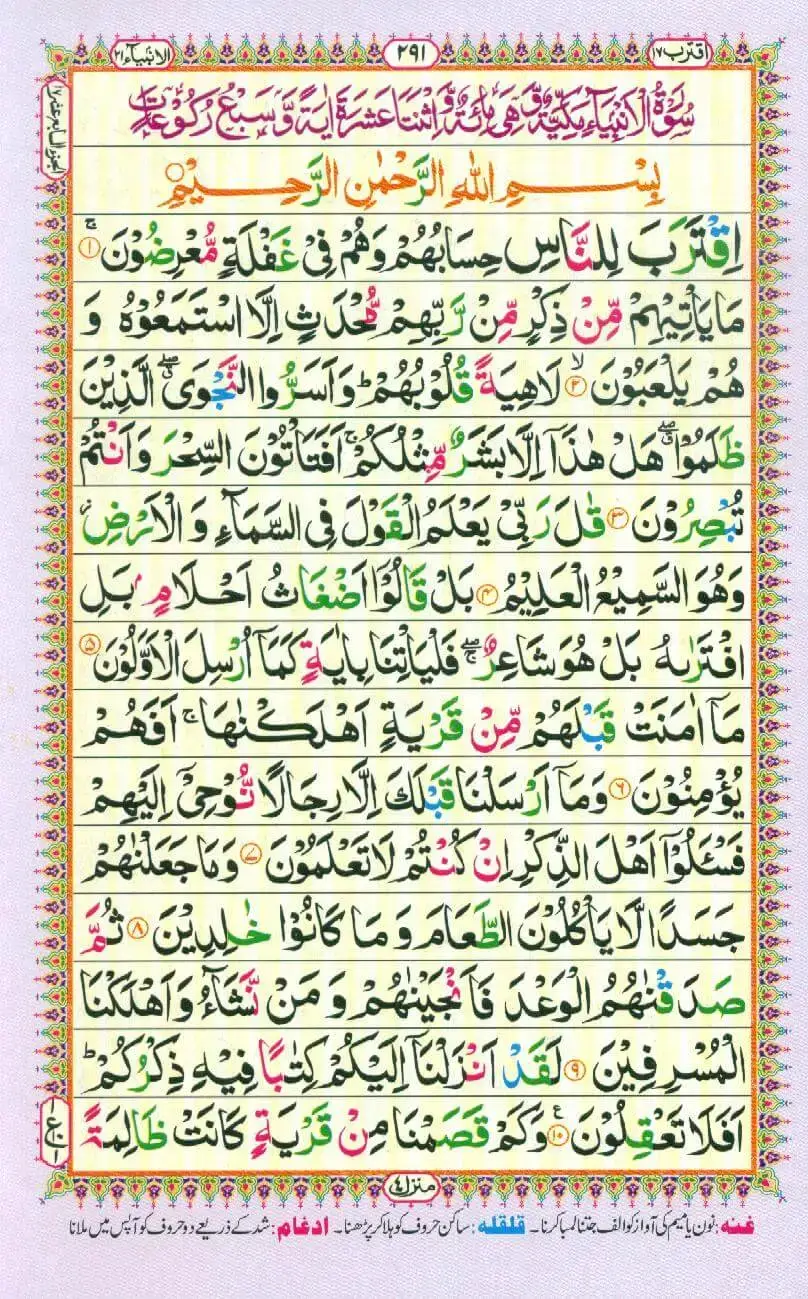 اقترب ١٧
٢٩١
الانبیآء ٢١
الجزء السابع عشر ١٧
سُوْرَةُ الْاَنْبِیَآءِ مَكِّیَّةٌ وَّهِیَ مِائَةٌ وَّاثْنَتَا عَشَرَةَ اٰیَةً وَّسَبْعُ رُكُوْعَاتٍ
بِسْمِ اللهِ الرَّحْمٰنِ الرَّحِیْمِ
اِقْتَرَبَ لِلنَّاسِ حِسَابُهُمْ وَهُمْ فِیْ غَفْلَةٍ مُّعْرِضُوْنَ ۚ‏﴿١﴾
مَا یَاْتِیْهِمْ مِّنْ ذِكْرٍ مِّنْ رَّبِّهِمْ مُّحْدَثٍ اِلَّا اسْتَمَعُوْهُ وَ
هُمْ یَلْعَبُوْنَ ۙ﴿٢﴾ لَاهِیَةً قُلُوْبُهُمْ ؕ وَاَسَرُّوا النَّجْوَی ۖۗ الَّذِیْنَ
ظَلَمُوْا ۖۗ هَلْ هٰذَاۤ اِلَّا بَشَرٌ مِّثْلُكُمْ ۚ اَفَتَاْتُوْنَ السِّحْرَ وَاَنْتُمْ
تُبْصِرُوْنَ ﴿٣﴾ قٰلَ رَبِّیْ یَعْلَمُ الْقَوْلَ فِی السَّمَآءِ وَ الْاَرْضِ ؗ
وَهُوَ السَّمِیْعُ الْعَلِیْمُ ﴿٤﴾ بَلْ قَالُوْۤا اَضْغَاثُ اَحْلَامٍۭ بَلِ
افْتَرٰىهُ بَلْ هُوَ شَاعِرٌ ۖۚ فَلْیَاْتِنَا بِاٰیَةٍ كَمَاۤ اُرْسِلَ الْاَوَّلُوْنَ ﴿٥﴾
مَاۤ اٰمَنَتْ قَبْلَهُمْ مِّنْ قَرْیَةٍ اَهْلَكْنٰهَا ۚ اَفَهُمْ
یُؤْمِنُوْنَ ﴿٦﴾ وَمَاۤ اَرْسَلْنَا قَبْلَكَ اِلَّا رِجَالًا نُّوْحِیْۤ اِلَیْهِمْ
فَسْـَٔلُوْۤا اَهْلَ الذِّكْرِ اِنْ كُنْتُمْ لَا تَعْلَمُوْنَ ﴿٧﴾ وَمَا جَعَلْنٰهُمْ
جَسَدًا لَّا یَاْكُلُوْنَ الطَّعَامَ وَ مَا كَانُوْا خٰلِدِیْنَ ﴿٨﴾ ثُمَّ
صَدَقْنٰهُمُ الْوَعْدَ فَاَنْجَیْنٰهُمْ وَ مَنْ نَّشَآءُ وَاَهْلَكْنَا
الْمُسْرِفِیْنَ ﴿٩﴾ لَقَدْ اَنْزَلْنَاۤ اِلَیْكُمْ كِتٰبًا فِیْهِ ذِكْرُكُمْ ؕ
اَفَلَا تَعْقِلُوْنَ ࣖ﴿١٠﴾ وَكَمْ قَصَمْنَا مِنْ قَرْیَةٍ كَانَتْ ظَالِمَةً
منزل ٤
غنه: نون یا میم کی آواز کو الف جتنا لمبا کرنا۔ قلقله: ساکن حروف کو ہلا کر پڑھنا۔ ادغام: شد کے ذریعے دو حروف کو آپس میں ملانا